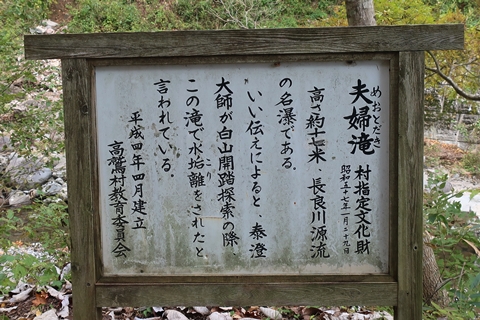 めおとだき
夫婦滝
村指定文化財
昭和五十七年一月二十九日
高さ約十七米、長良川源流
の名瀑である.
いい伝えによると、泰澄
大師が白山開踏探索の際、
この滝で水垢離をされたと
こり
言われている.
平成四年四月建立
高鷲村教育委員会